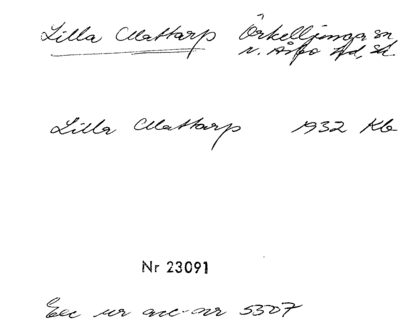 Lilla Mattarp Örkelljunga sn,
n. Åsbo hd, Sk.
Lilla Mattarp 1932 Kb
Nr 23091
Exc ur acc-nr 5307